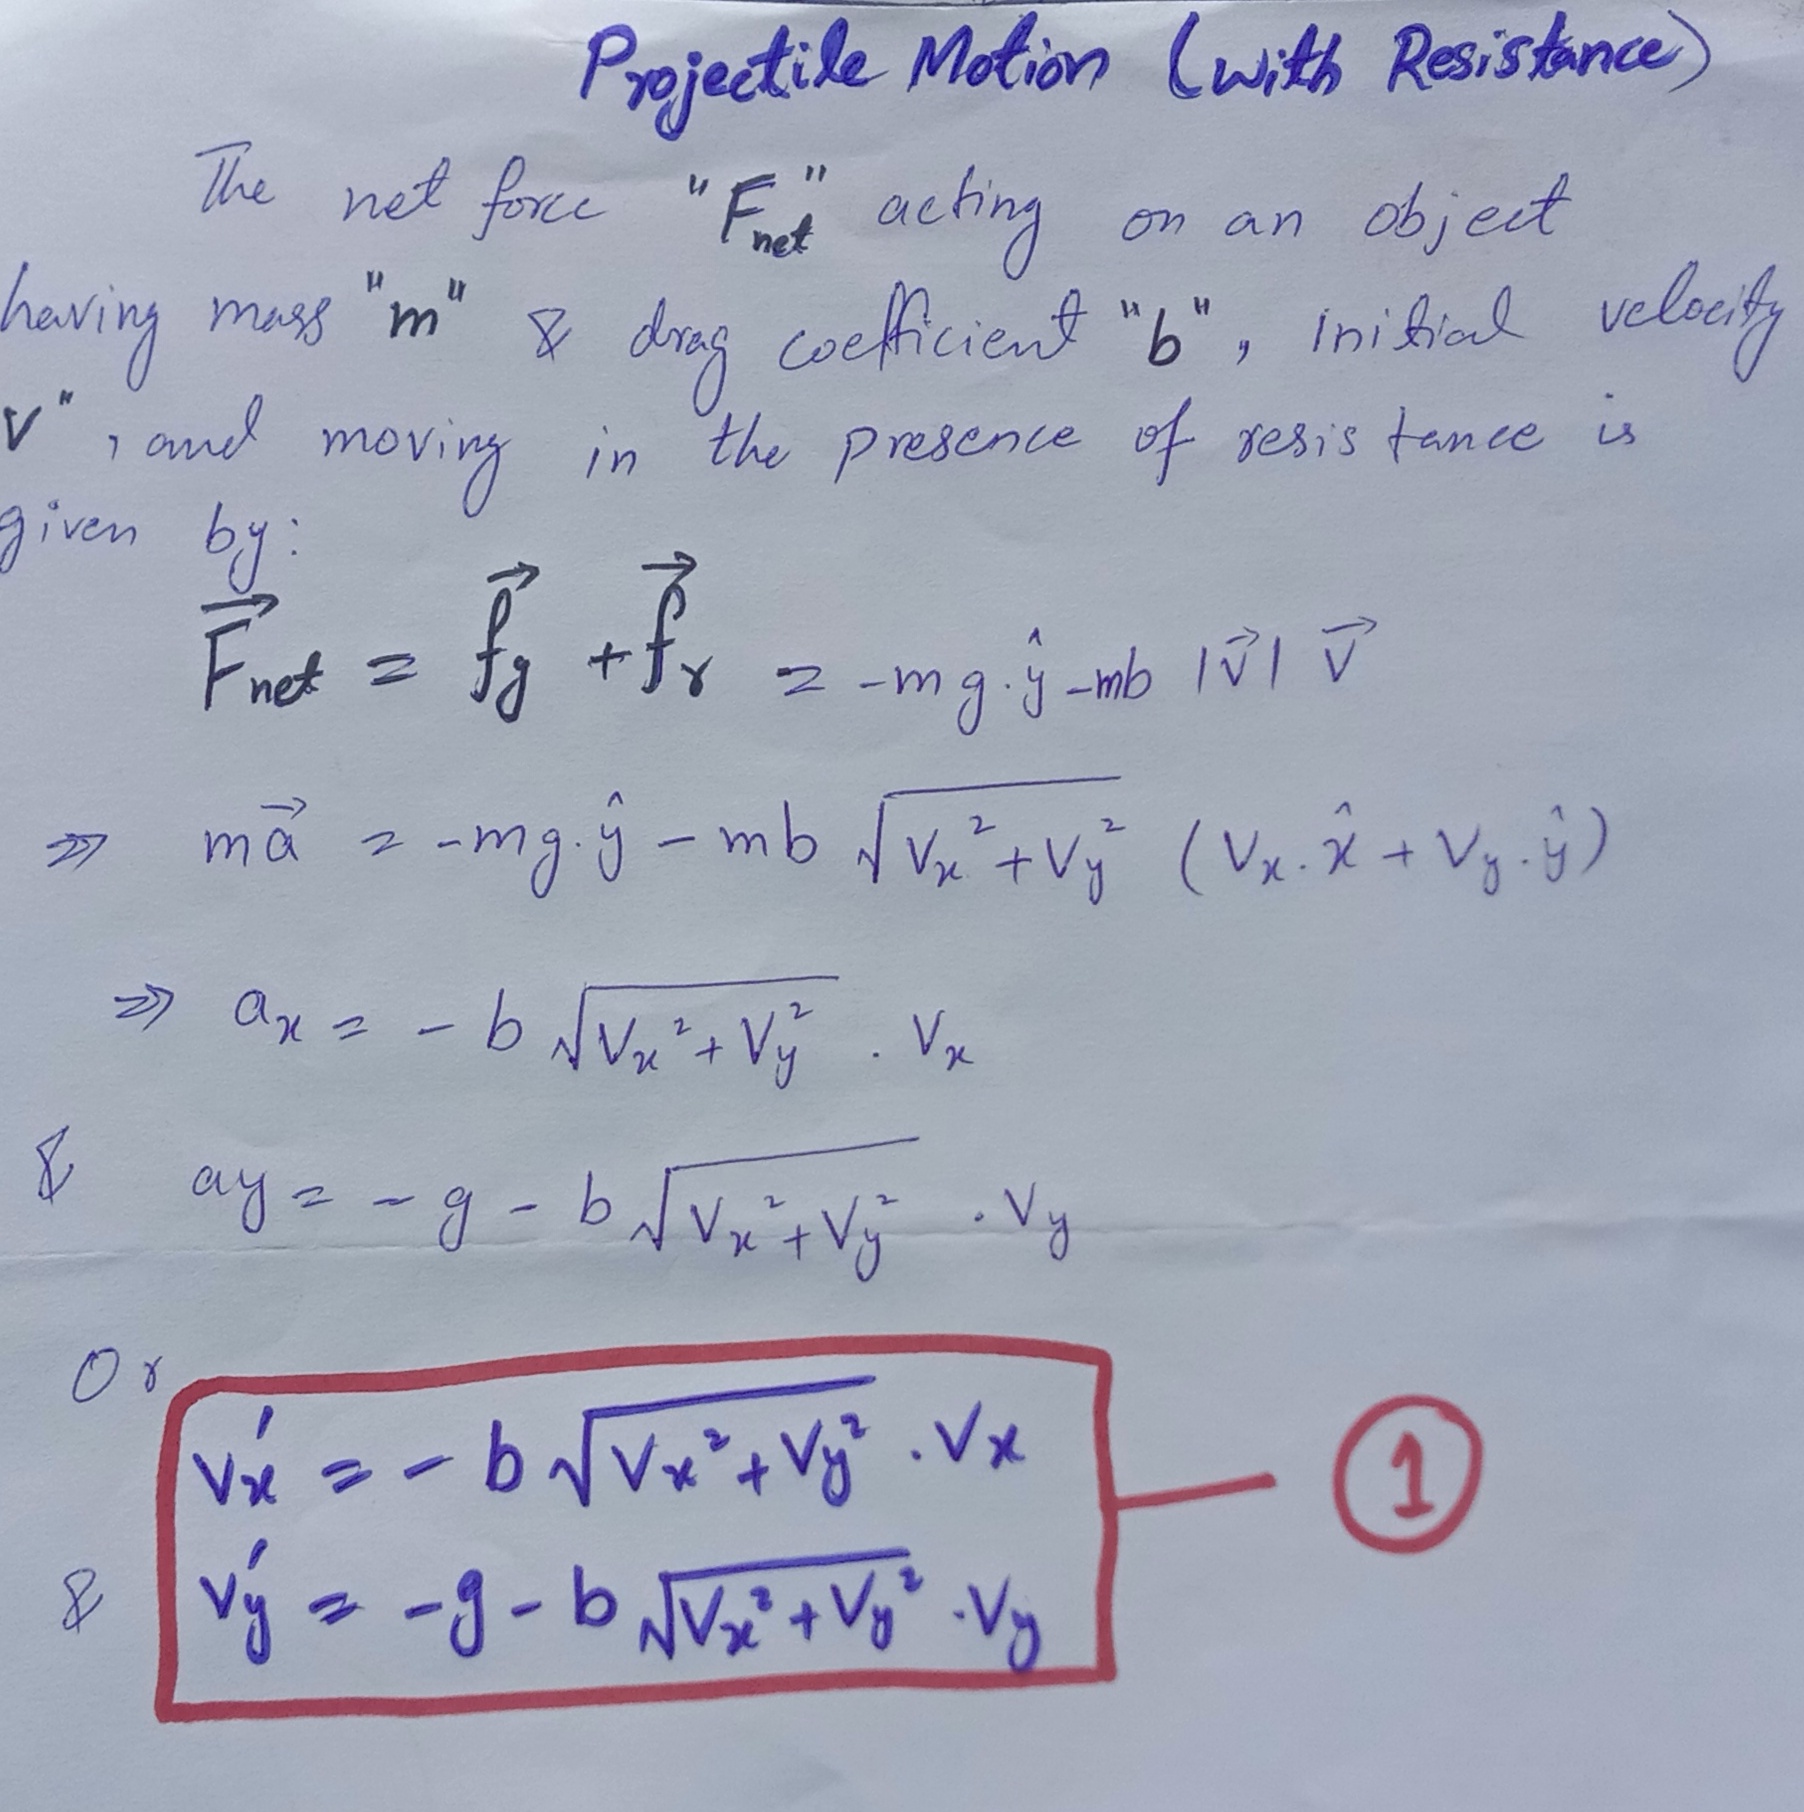 Projectile Motion (with Resistance)
The net force "Fnet" acting on an object
having mass "m" & drag coefficient "b", initial velocity
v", and moving in the presence of resistance is
given by:
F⃗net = f⃗g + f⃗r = -mg.ŷ -mb |v⃗| v⃗
⇒ ma⃗ = -mg.ŷ - mb √(Vx²+Vy²) (Vx.x̂ + Vy.ŷ)
⇒ ax = - b √(Vx²+Vy²) . Vx
& ay = -g - b √(Vx²+Vy²) .Vy
Or
Vx′ = - b √(Vx²+Vy²) .Vx
1
& Vy′ = -g - b √(Vx²+Vy²) .Vy